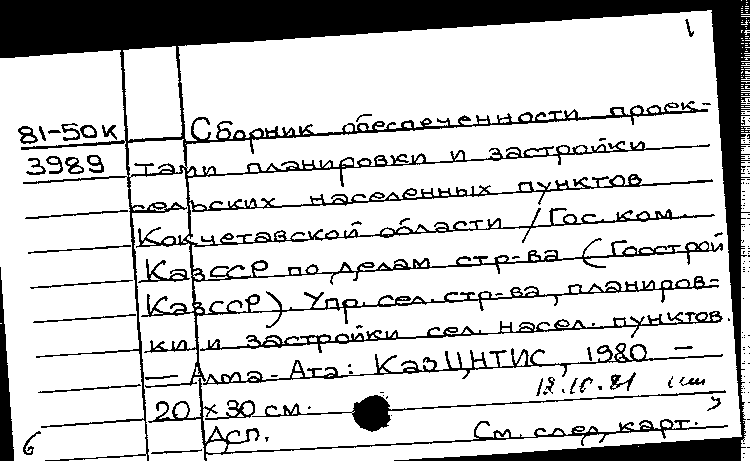 1
81-50к Сборник обеспеченности проек-
3989 тами планировки и застройки
сельских населенных пунктов
Кокчетавской области / Гос. ком.
КазССР по делам стр-ва (Госстрой
КазССР). Упр. сел. стр-ва, планиров-
ки и застройки сел. насел. пунктов.
— Алма-Ата: КазЦНТИС, 1980 —
12.10.81
20 x 30 см.
б Дсп. См. след. карт.